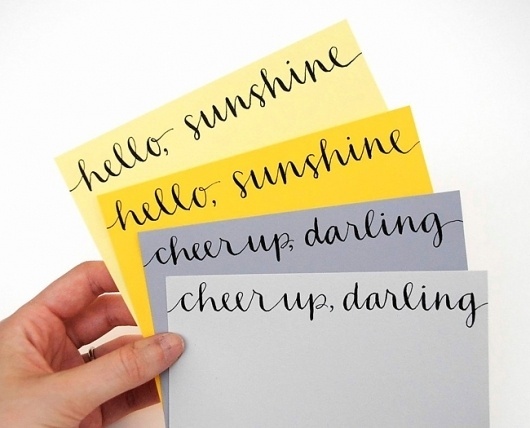 hello, sunshine
hello, sunshine
cheer up, darling
cheer up, darling